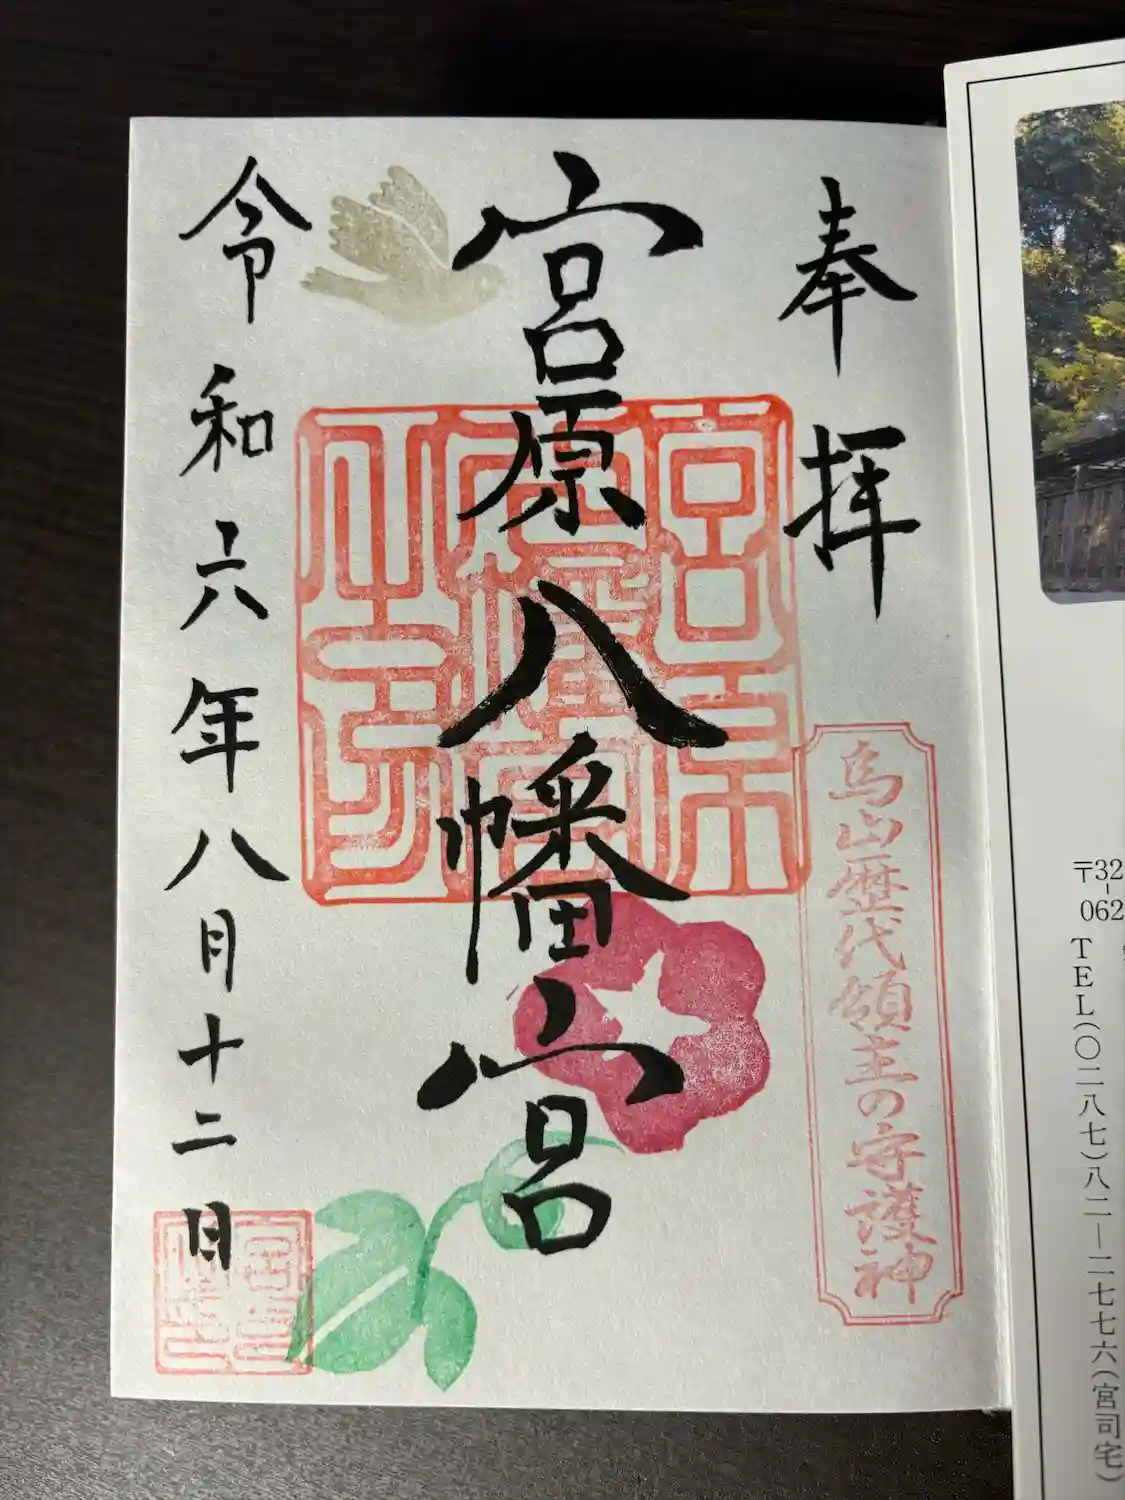 〒32
-
062
TEL(〇二八七)八二―二七七六(宮司宅)
奉拝
烏山歴代領主の守護神
宮原八幡宮
令和六年八月十二日